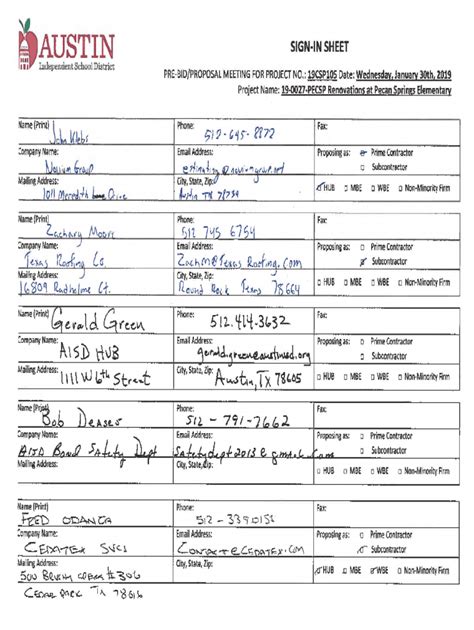 AUSTIN
Independent School District
SIGN-IN SHEET
PRE-BID/PROPOSAL MEETING FOR PROJECT NO.: 19CSP105 Date: Wednesday, January 30th, 2019
Project Name: 19-0027-PECSP Renovations at Pecan Springs Elementary
Name (Print) John Phone: 512-645-8872 Fax:
Company Name: Group Email Address: Proposing as: Prime Contractor
Subcontractor
Mailing Address: 1011 Meredith Drive City, State, Zip: Austin TX HUB MBE WBE Non-Minority Firm
Name (Print) Zachary Moore Phone: 512 745 6754 Fax:
Company Name: Texas Roofing Co Email Address: ZachM@TexasRoofing.com Proposing as: Prime Contractor
Subcontractor
Mailing Address: 16809 Radholme Ct. City, State, Zip: Round Rock Texas 78664 HUB MBE WBE Non-Minority Firm
Name (Print) Gerald Green Phone: 512.414.3632 Fax:
Company Name: AISD HUB Email Address: gerald.green@austinisd.org Proposing as: Prime Contractor
Subcontractor
Mailing Address: 1111 W 6th Street City, State, Zip: Austin, TX 78605 HUB MBE WBE Non-Minority Firm
Name (Print) Bob Phone: 512-791-7662 Fax:
Company Name: AISD Bond Safety Dept Email Address: Safetydept2013@gmail.com Proposing as: Prime Contractor
Subcontractor
Mailing Address: City, State, Zip: HUB MBE WBE Non-Minority Firm
Name (Print) Phone: 512-3390151 Fax:
Company Name: CEDATEX SVCS Email Address: CONTACT@CEDATEX.COM Proposing as: Prime Contractor
Subcontractor
Mailing Address: 500 #306 City, State, Zip: HUB MBE WBE Non-Minority Firm
CEDAR PARK TX 78616